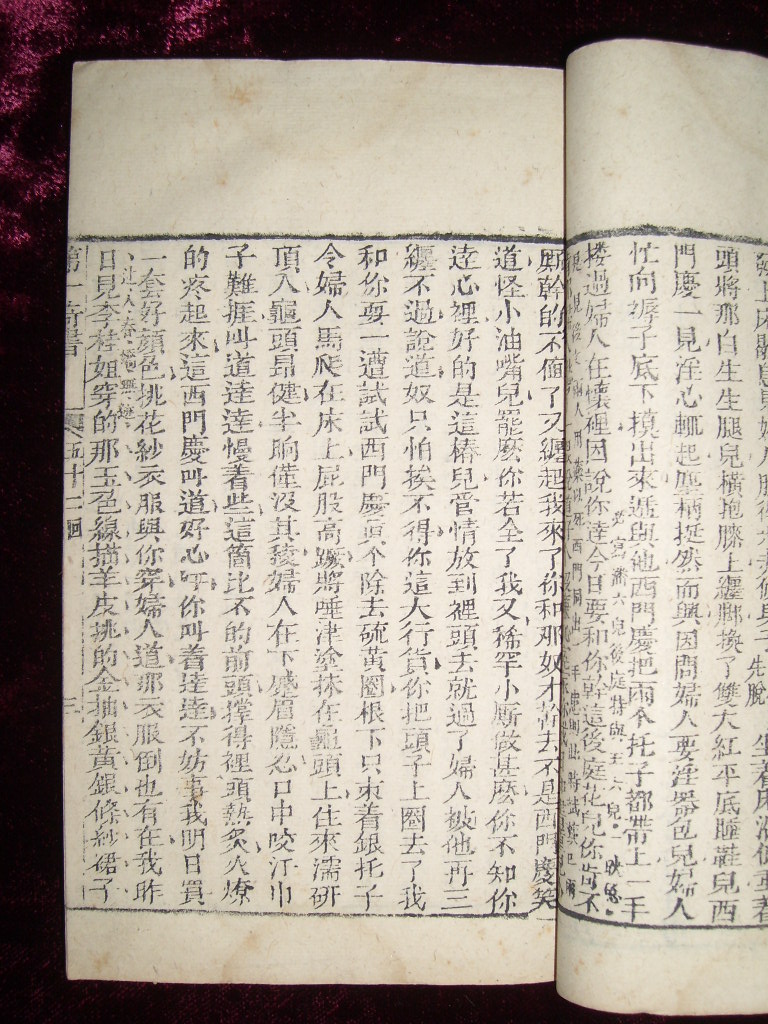 生着床沿低垂着
頭將那白生生腿兒橫抱膝上纏脚換了雙大紅平底睡鞋兒西
門慶一見淫心輒起塵柄挺然而興因問婦人要淫器包兒婦人
忙向褥子底下摸出來遞與他西門慶把兩个托子都帶上一手
摟過婦人在懷裡因說你逹今日要和你幹這後庭花兒你肯不
六兒後庭特與王六兒映
厮幹的不值了又纏起我來了你和那奴才幹去不是西門慶笑
道怪小油嘴兒罷麽你若全了我又稀罕小厮做甚麽你不知你
逹心裡好的是這樁兒管情放到裡頭去就過了婦人被他再三
纏不過說道奴只怕挨不得你這大行貨你把頭子上圈去了我
和你耍一遭試試西門慶真个除去硫黃圈根下只束着銀托子
令婦人馬爬在床上屁股高蹶將唾津塗抹在龜頭上住來濡研
頂入龜頭昂健半晌僅沒其稜婦人在下蹙眉隱忍口中咬汗巾
子難捱叫道逹逹慢着些這箇比不的前頭撐得裡頭熱炙火燎
的疼起來這西門慶叫道好心呀你叫着逹逹不妨事我明日買
一套好顏色挑花紗衣服與你穿婦人道那衣服倒也有在我昨
日見李桂姐穿的那玉色線描羊皮挑的金油銀黃銀條紗裙子
第一奇書 五十二囘